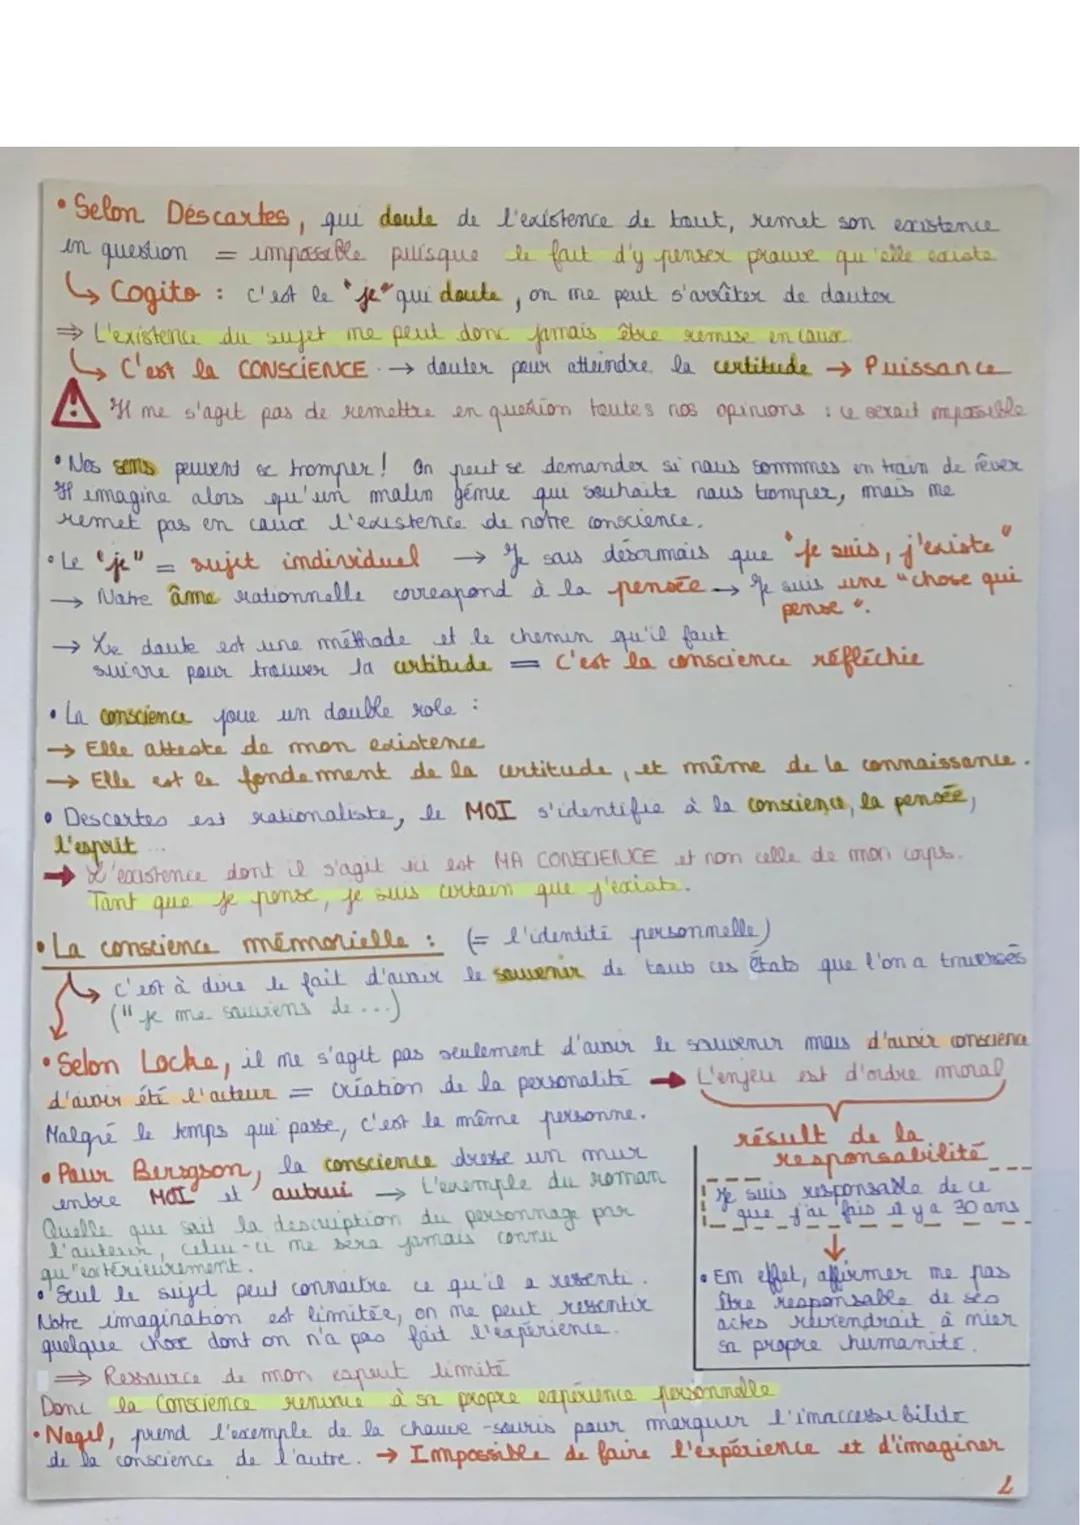 • Selon Déscartes, qui doute de l'existence de tout, remet son existence
en question = impossible puisque le fait d'y penser prouve qu'elle existe
↳ Cogito : c'est le "je" qui doute, on ne peut s'arrêter de douter
⇒ L'existence du sujet ne peut donc jamais être remise en cause.
↳ C'est la CONSCIENCE → douter pour atteindre la certitude → Puissance
⚠ Il ne s'agit pas de remettre en question toutes nos opinions : ce serait impossible
• Nos sens peuvent se tromper ! On peut se demander si nous sommmes en train de rêver
Il imagine alors qu'un malin génie qui souhaite nous tromper, mais ne
remet pas en cause l'existence de notre conscience.
• Le "je" = sujet individuel → Je sais désormais que "je suis, j'existe"
→ Notre âme rationnelle correspond à la pensée → Je suis une "chose qui
pense".
→ Le doute est une méthode et le chemin qu'il faut
suivre pour trouver la certitude = C'est la conscience réfléchie
• La conscience joue un double role :
→ Elle atteste de mon existence
→ Elle est le fondement de la certitude, et même de la connaissance.
• Descartes est rationaliste, le MOI s'identifie à la conscience, la pensée,
l'esprit ...
→ L'existence dont il s'agit ici est MA CONSCIENCE et non celle de mon corps.
Tant que je pense, je suis certain que j'existe.
• La conscience mémorielle : (= l'identité personnelle)
↳ c'est à dire le fait d'avoir le souvenir de tous ces États que l'on a traversés
("je me souviens de ...)
• Selon Locke, il ne s'agit pas seulement d'avoir le souvenir mais d'avoir conscience
d'avoir été l'acteur = création de la personalité → L'enjeu est d'ordre moral
Malgré le temps qui passe, c'est la même personne.
résult de la
responsabilité
Je suis responsable de ce
que j'ai fais il y a 30 ans
↓
• En effet, affirmer ne pas
être responsable de ses
actes reviendrait à nier
sa propre humanité.
• Pour Bergson, la conscience dresse un mur
entre MOI et autrui → L'exemple du roman
Quelle que soit la description du personnage par
l'auteur, celui-ci ne sera jamais connu
qu'extérieurement.
• Seul le sujet peut connaitre ce qu'il a resenti.
Notre imagination est limitée, on ne peut ressentir
quelque chose dont on n'a pas fait l'expérience.
⇒ Ressource de mon esprit limité
Donc la Conscience renvoie à sa propre expérience personnelle
• Nagel, prend l'exemple de la chauve-souris pour marquer l'inaccessibilité
de la conscience de l'autre. → Impossible de faire l'expérience et d'imaginer